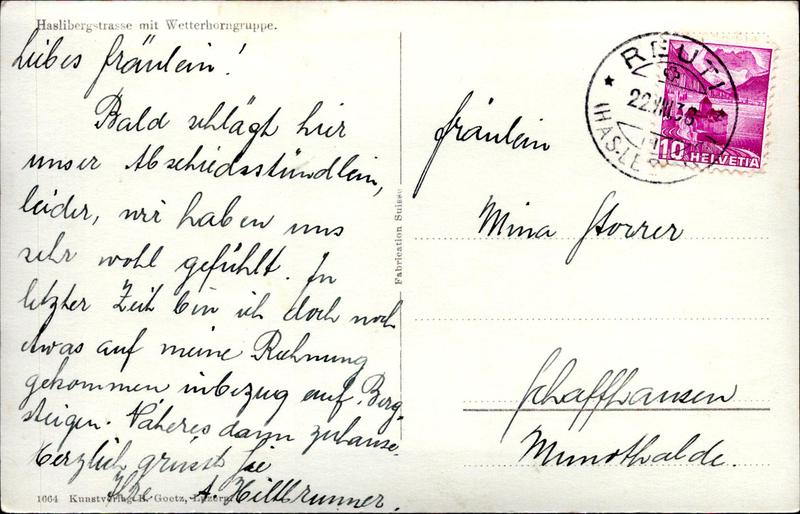 Haslibergstrasse mit Wetterhorngruppe.
Liebes Fräulein!
Bald schlägt hier
unser Abschiedsstündlein,
leider, wir haben uns
sehr wohl gefühlt. In
letzter Zeit bin ich doch noch
etwas auf meine Rechnung
gekommen inbezug auf Berg-
steigen. Näheres dann zuhause.
Herzlich grüsst Sie
Ihre A. Hiltbrunner.
1664 Kunstverlag E. Goetz, Luzern
Fabrication Suisse
REUTI
22.VIII.36
(HASLE
10 HELVETIA
Fräulein
Mina Storrer
Schaffhausen
Munothalde.